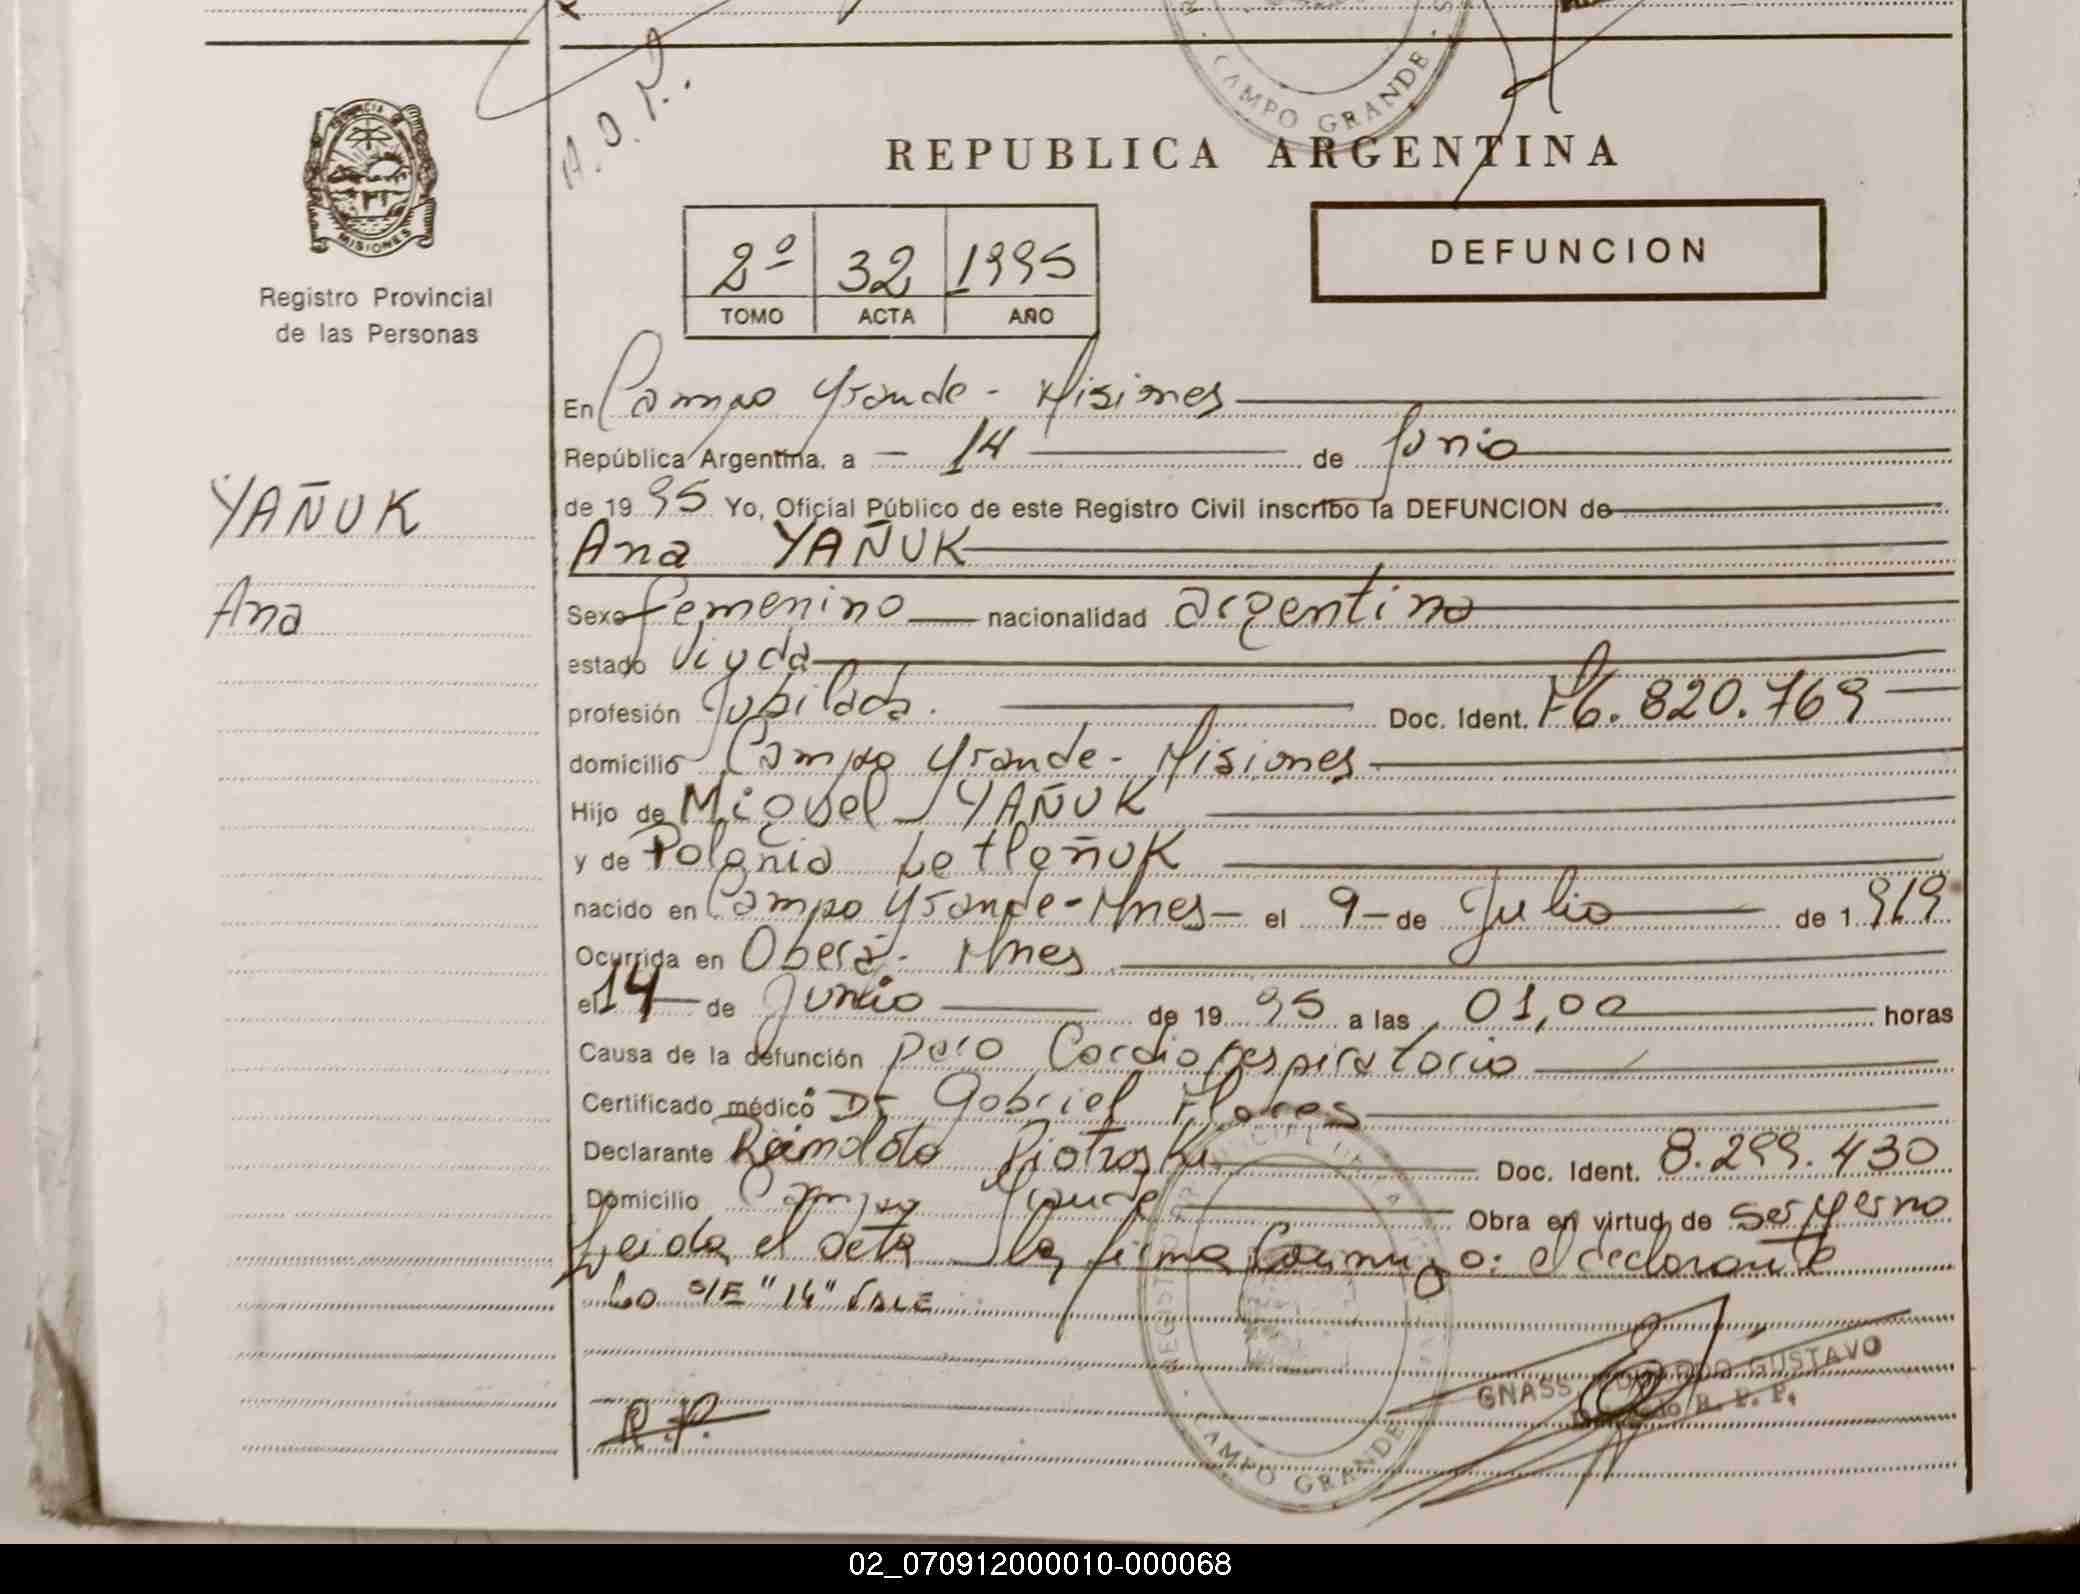 CAMPO GRANDE
A.O.P.
PROVINCIA
MISIONES
Registro Provincial
de las Personas
REPUBLICA ARGENTINA
2º 32 1995
TOMO ACTA AÑO
DEFUNCION
En Campo Grande - Misiones
República Argentina, a - 14 de Junio
de 1995 Yo, Oficial Público de este Registro Civil inscribo la DEFUNCION de
YAÑUK
Ana
Ana YAÑUK
Sexo femenino nacionalidad argentina
estado Viuda
profesión Jubilada. Doc. Ident. M6.820.769
domicilio Campo Grande - Misiones
Hijo de Miguel YAÑUK
y de Polañia Letleñuk
nacido en Campo Grande - Mnes - el 9 - de Julio de 1919
Ocurrida en Oberá - Mnes
el 14 de Junio de 1995 a las 01,00 horas
Causa de la defunción paro Cardiorespiratorio
Certificado médico Dr Gabriel Flores
Declarante Reimoldo Piotroski Doc. Ident. 8.299.430
Domicilio Campo Grande Obra en virtud de ser yerno
Leida el acta la firma Conmigo: el declarante
Lo S/E "14" VALE
R.P.
REGISTRO
CAMPO GRANDE
GNASS, EDUARDO GUSTAVO
Delegado R. P. P.
02_070912000010-000068